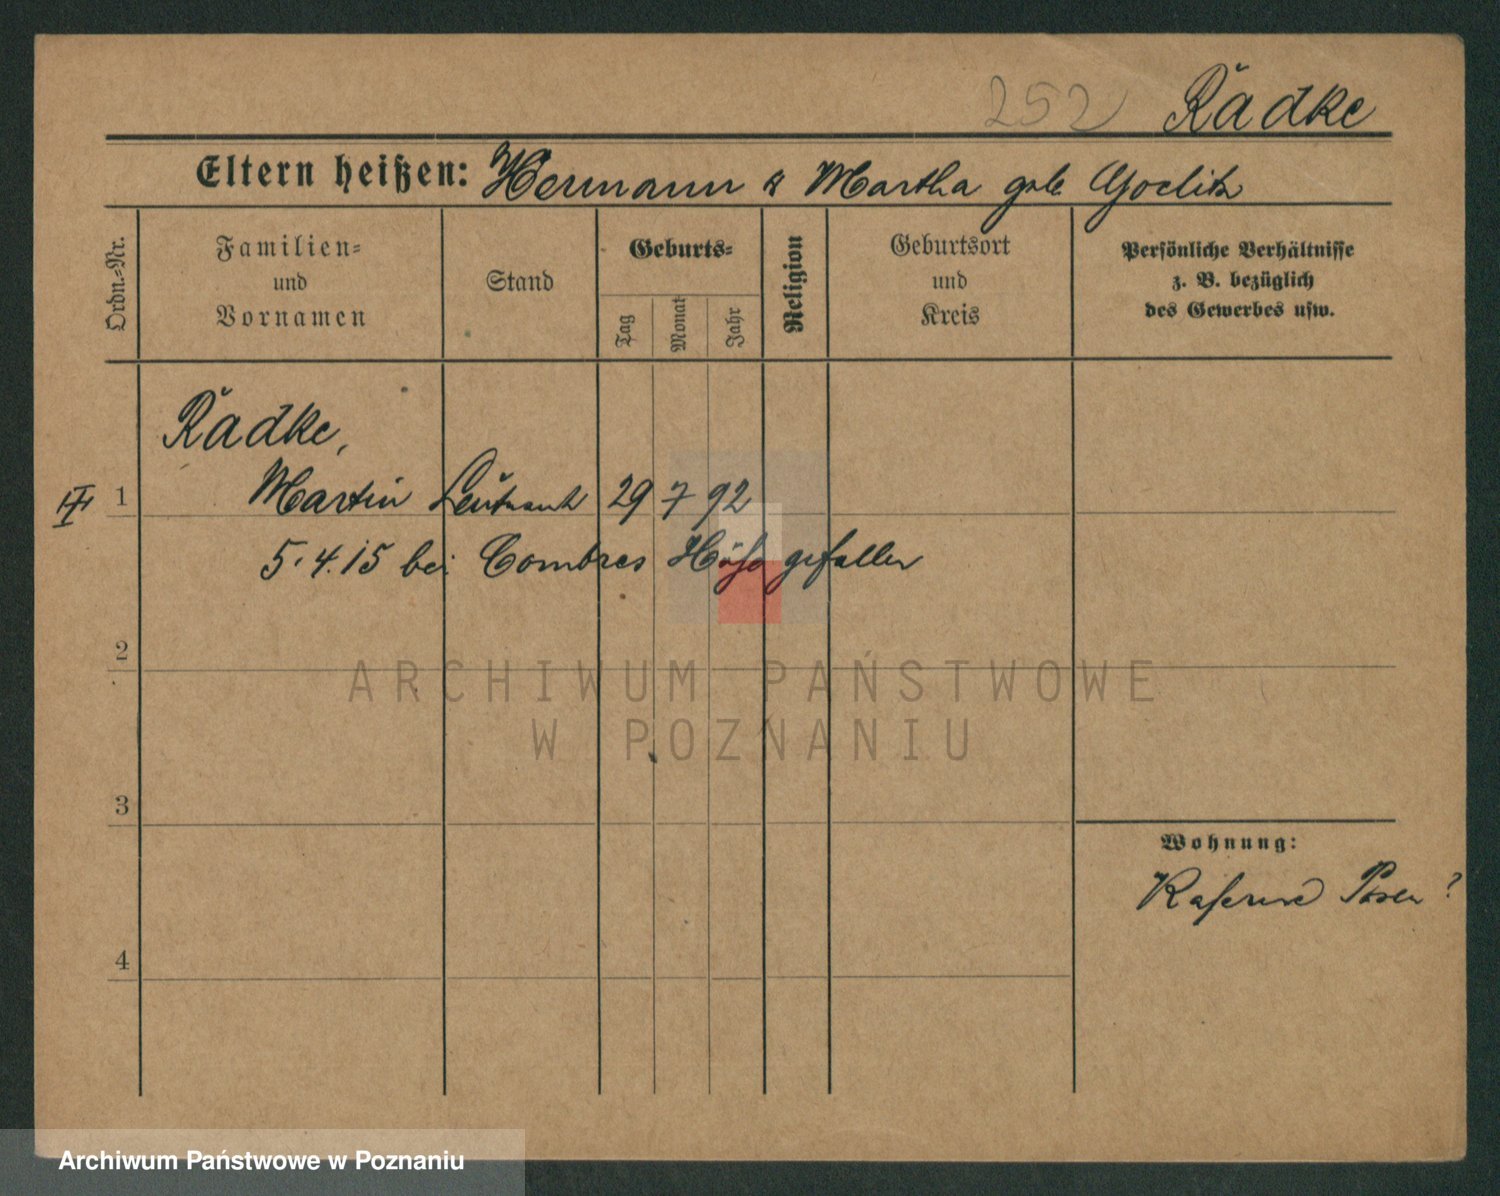 252 Rädke
Eltern heißen: Hermann & Martha geb. Goelitz
Ordn.=Nr.
Familien=
und
Vornamen
Stand
Geburts=
Tag
Monat
Jahr
Religion
Geburtsort
und
Kreis
Persönliche Verhältnisse
z. B. bezüglich
des Gewerbes usw.
Rädke,
1 Martin Leutnant 29 7 92
5.4.15 bei Combres Höhe gefallen
2
ARCHIWUM PAŃSTWOWE
W POZNANIU
3
Wohnung:
Kaserne Posen ?
4
Archiwum Państwowe w Poznaniu